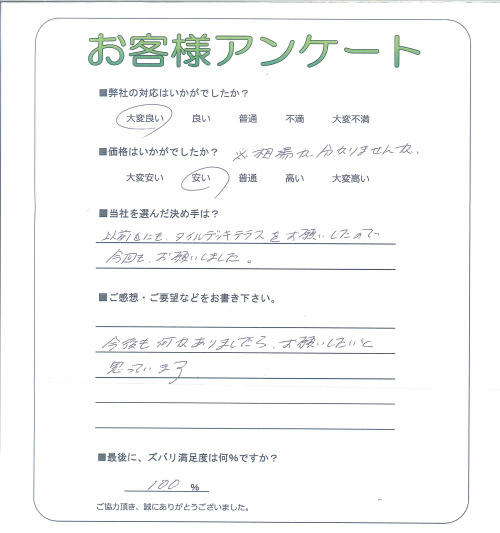 お客様アンケート
■弊社の対応はいかがでしたか?
大変良い 良い 普通 不満 大変不満
■価格はいかがでしたか? ※相場が分かりませんが、
大変安い 安い 普通 高い 大変高い
■当社を選んだ決め手は?
以前にも、タイルデッキテラスをお願いしたので
今回も、お願いしました。
■ご感想・ご要望などをお書き下さい。
今後も何かありましたら、お願いしたいと
思っています
■最後に、ズバリ満足度は何%ですか?
100 %
ご協力頂き、誠にありがとうございました。